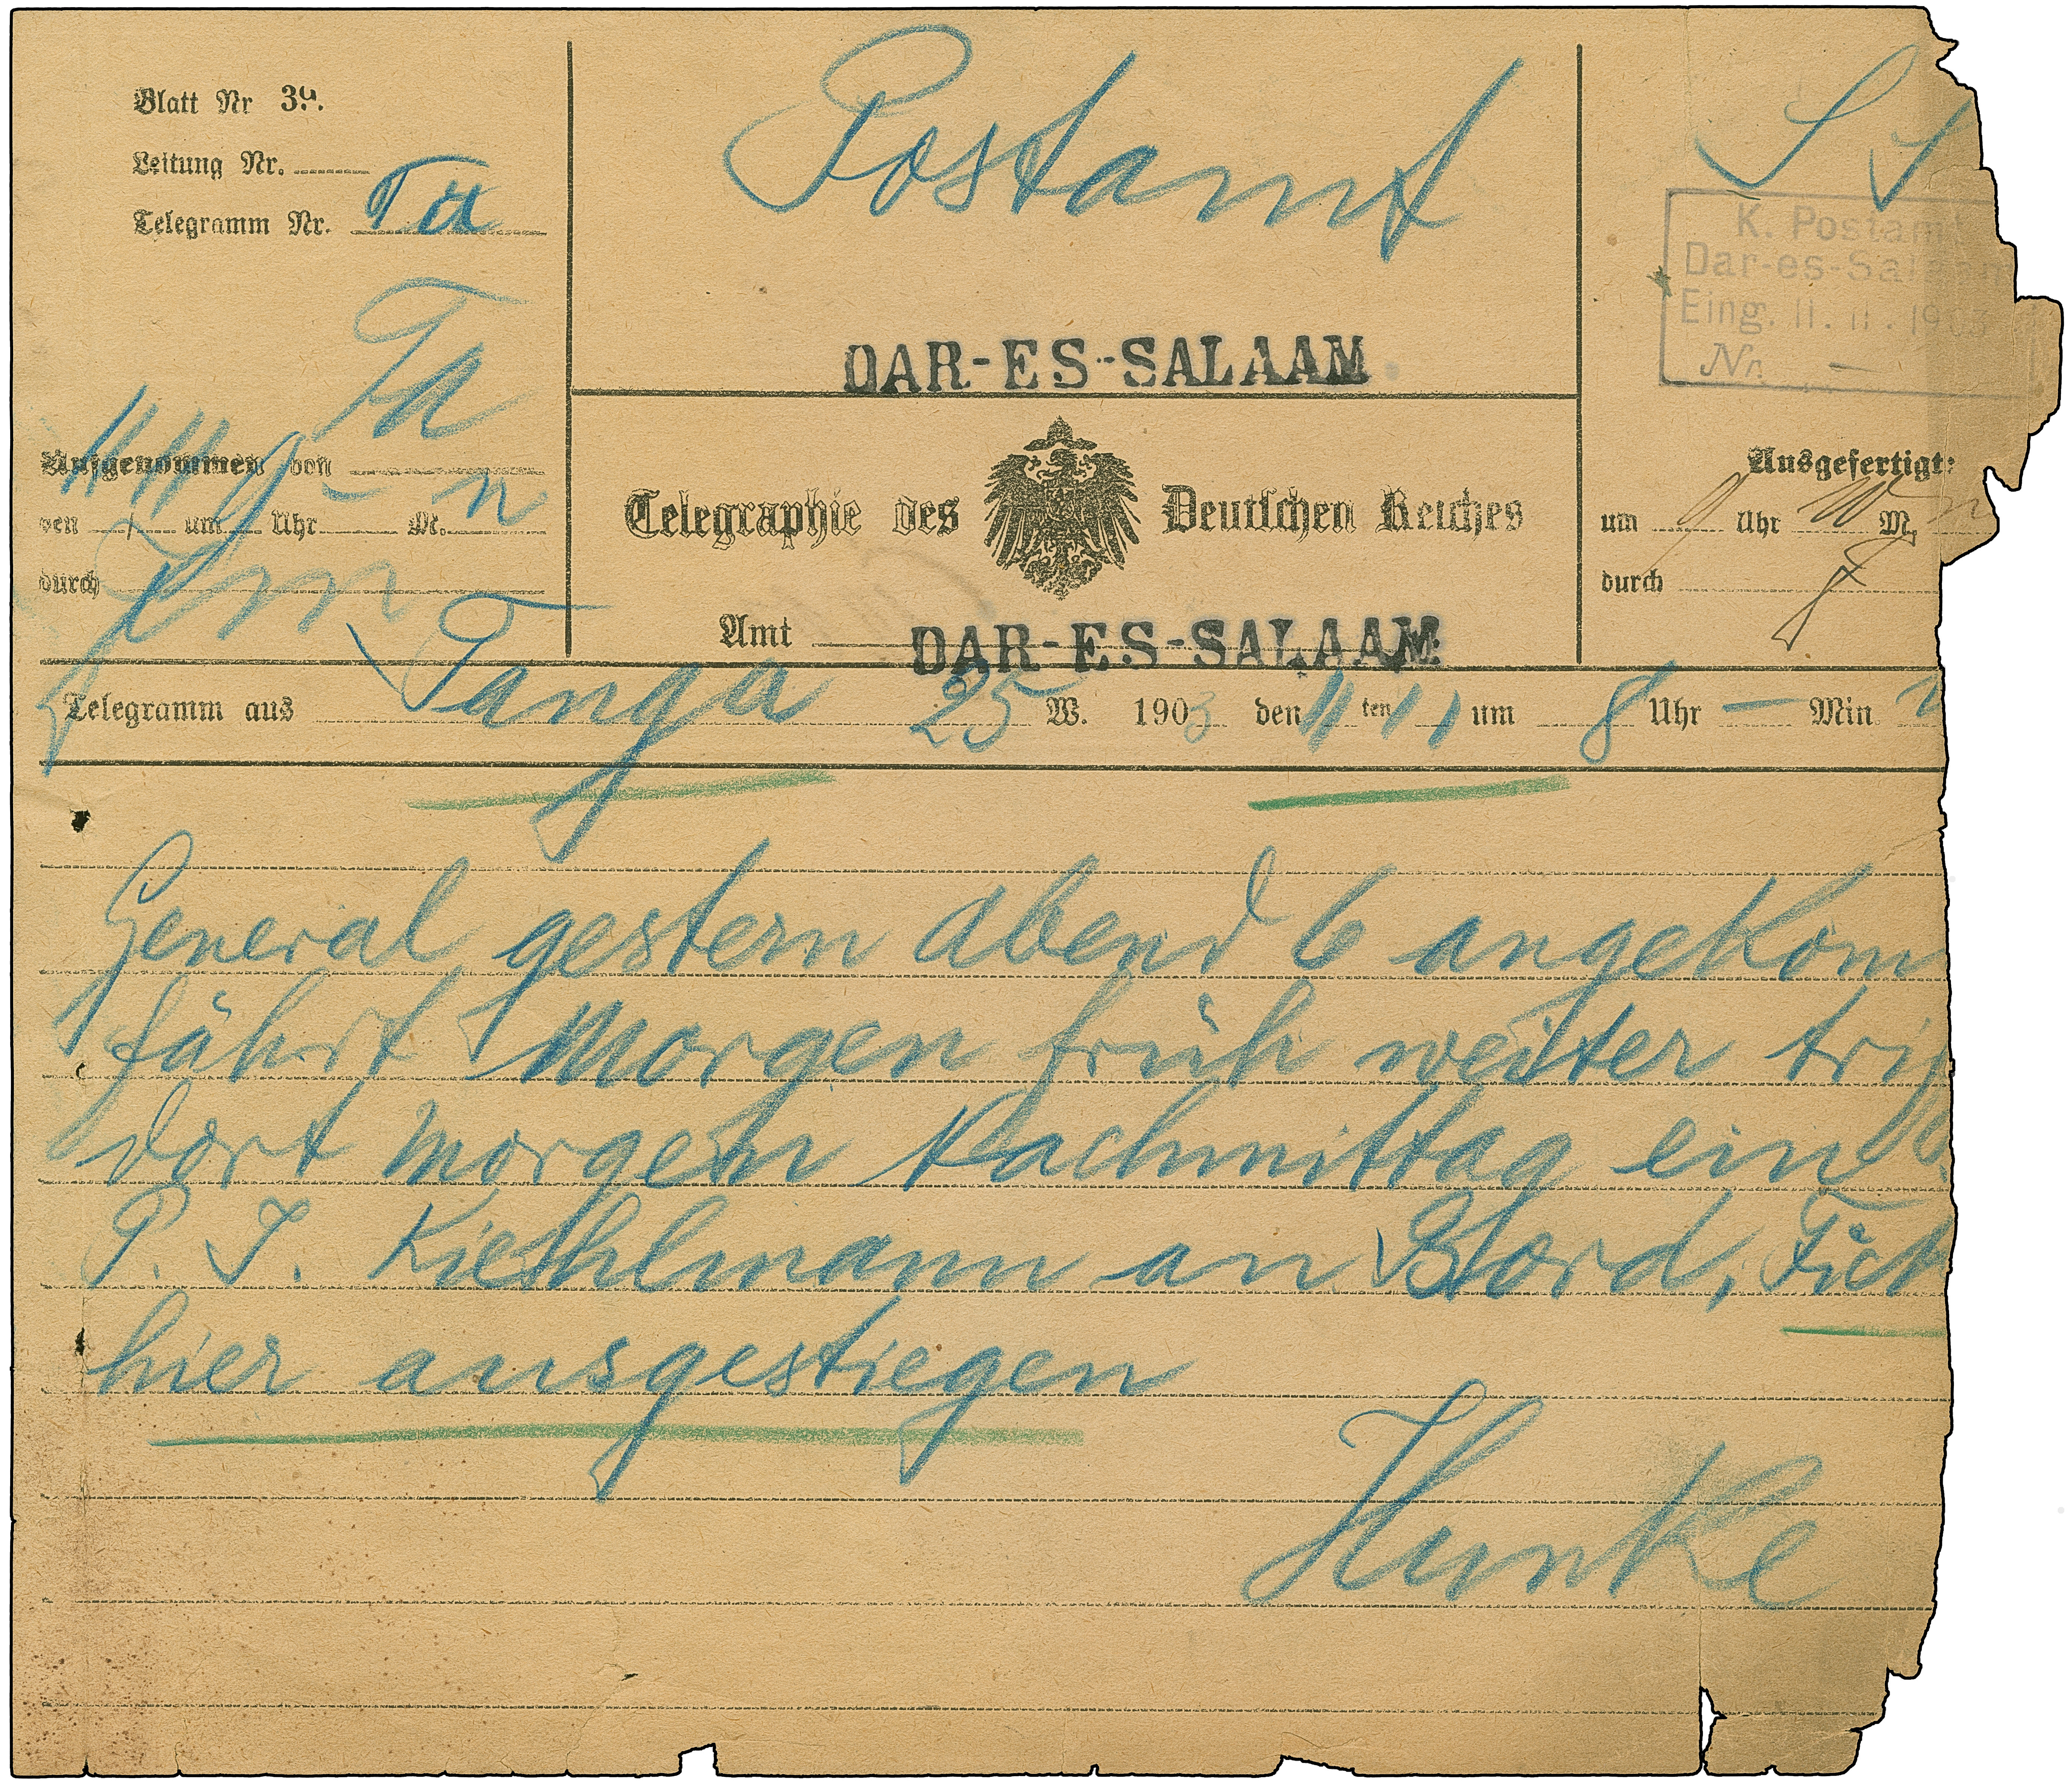 Blatt Nr 39.
Leitung Nr.
Telegramm Nr. Ta
Ta
Aufgenommen von
11 11
den / um Uhr – M. n
durch
Postamt
DAR-ES-SALAAM
Telegraphie des Deutschen Reiches
Amt DAR-ES-SALAAM
S S
K. Postamt
Dar-es-Salaam
Eing. 11. 11. 1903
Nr. –
Ausgefertigt:
um 9 Uhr 10 M. n
durch
Telegramm aus Tanga 25 W. 1903 den 11 ten 11 um 8 Uhr – Min
General gestern abend 6 angekom
fährt morgen früh weiter trif
dort morgen Nachmittag ein
P. J. Kiehlmann an Bord, Fick
hier ausgestiegen
Hunke